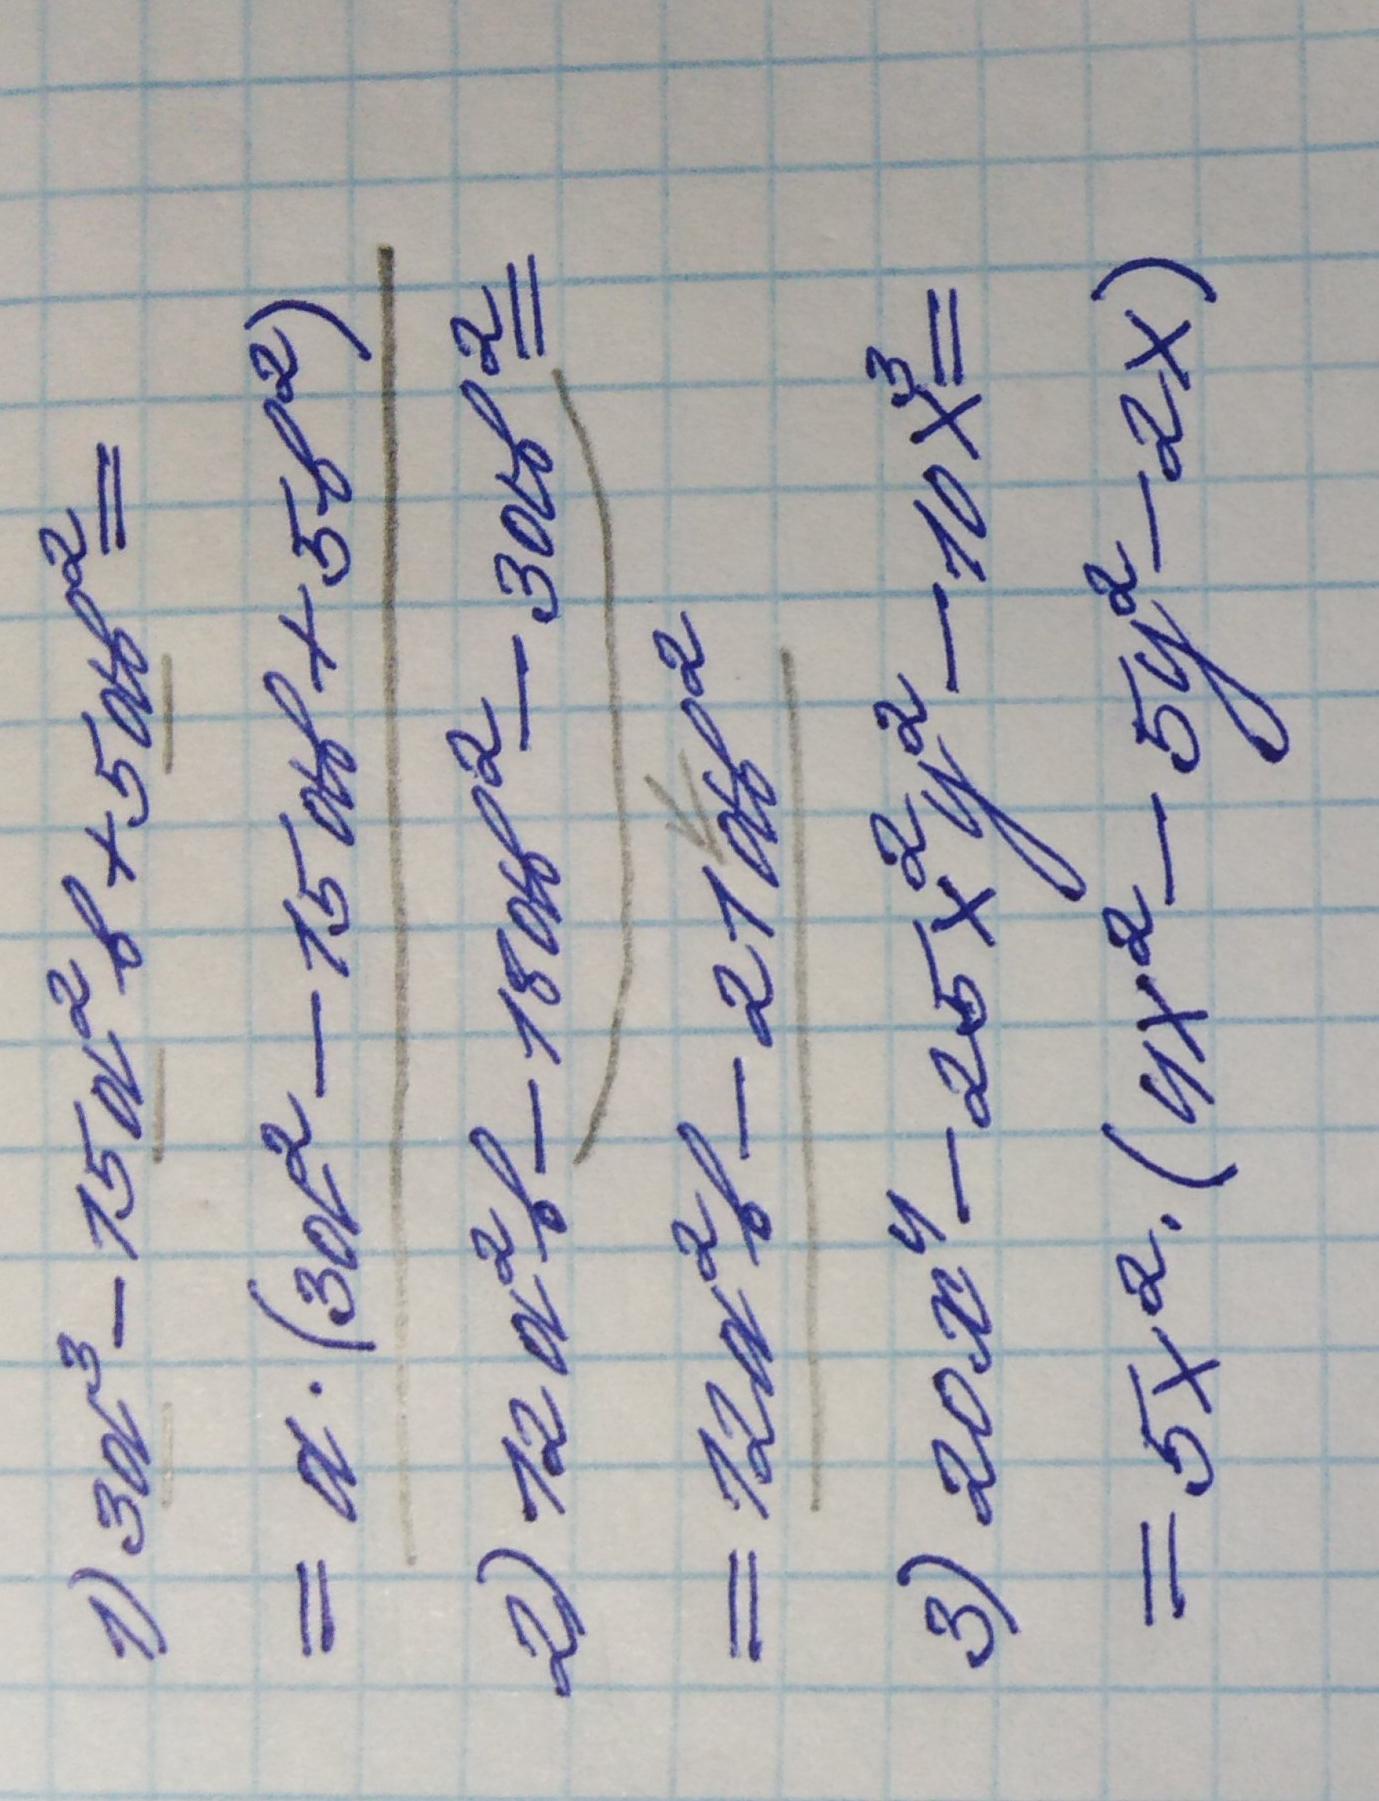 1) 3a³ - 15a²b + 5ab² =
= a · (3a² - 15ab + 5b²)
2) 12a²b - 18ab² - 3ab² =
= 12a²b - 21ab²
3) 20x⁴ - 25x²y² - 10x³ =
= 5x² · (4x² - 5y² - 2x)